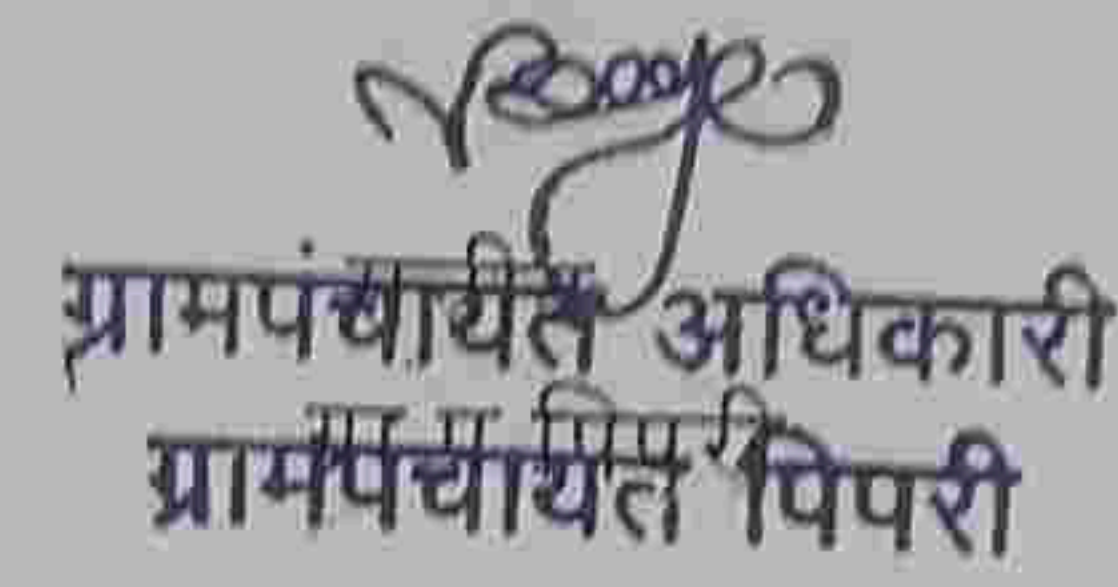 ग्रामपंचायत अधिकारी
ग्रामपंचायत पिपरी